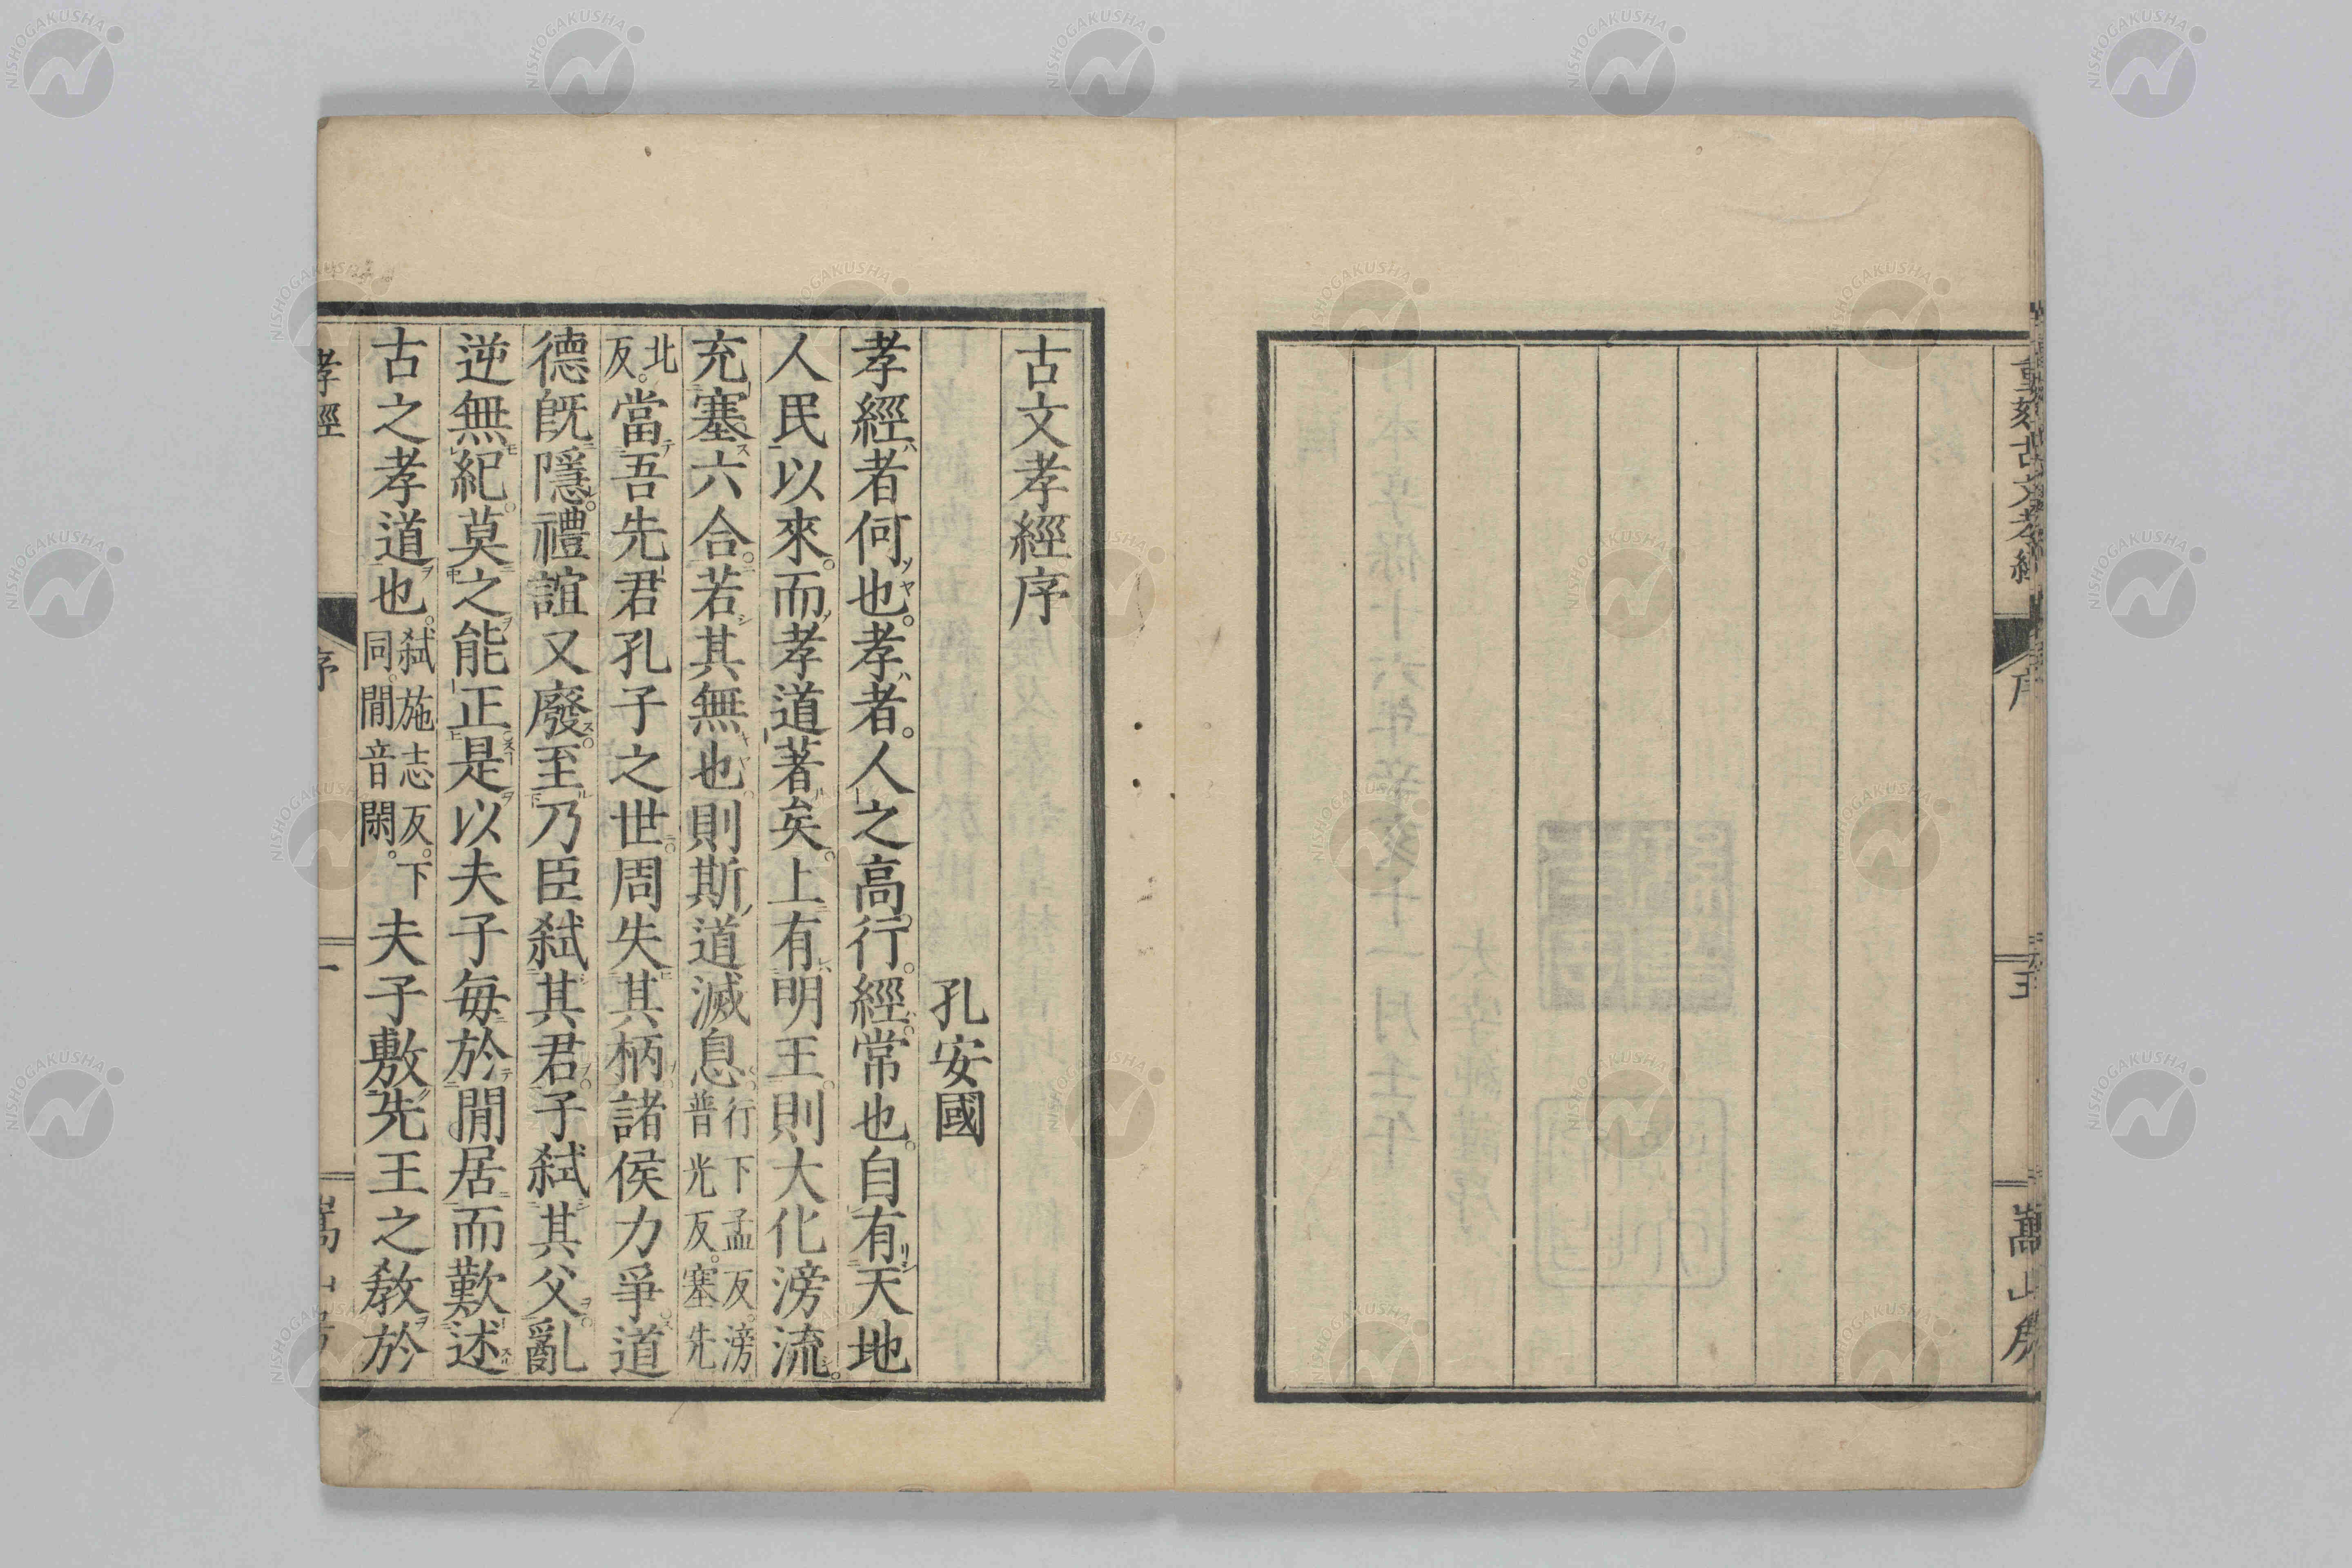 重刻古文孝經
序
五
嵩山房
古文孝經序
孔安國
孝經者何也。孝者。人之高行。經常也。自有天地
人民以來。而孝道著矣。上有明王。則大化滂流。
充塞六合。若其無也。則斯道滅息。行下孟反。滂普光反。塞先
北反。當吾先君孔子之世。周失其柄。諸侯力爭。道
德既隱。禮誼又廢。至乃臣弑其君。子弑其父。亂
逆無紀。莫之能正。是以夫子每於閒居。而歎述
古之孝道也。弑施志反。下同。閒音閑。夫子敷先王之教於
孝經
序
一
嵩山房
NISHOGAKUSHA